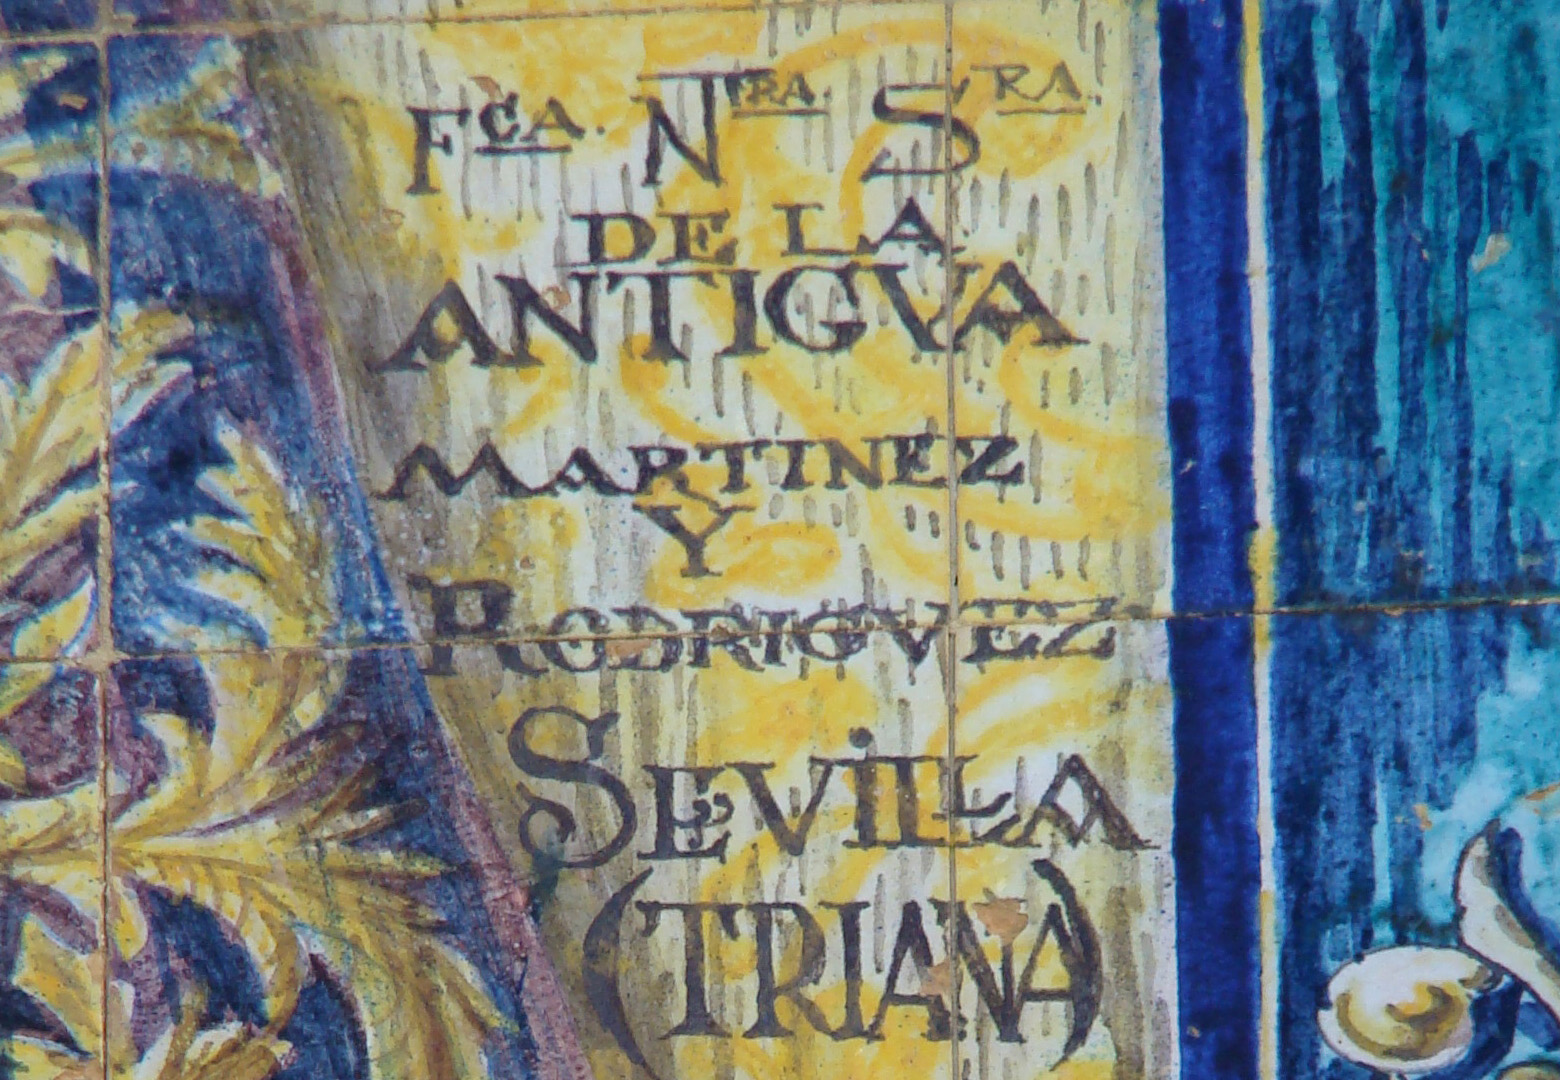 Fca. Ntra. Sra.
DE LA
ANTIGVA
MARTINEZ
Y
RODRIGVEZ
SEVILLA
(TRIANA)